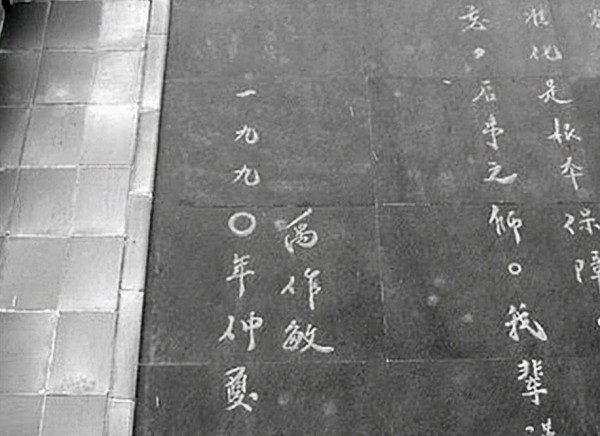 化是根本保障，
忘，后事之师。我辈
禹作敏
一九九〇年仲夏